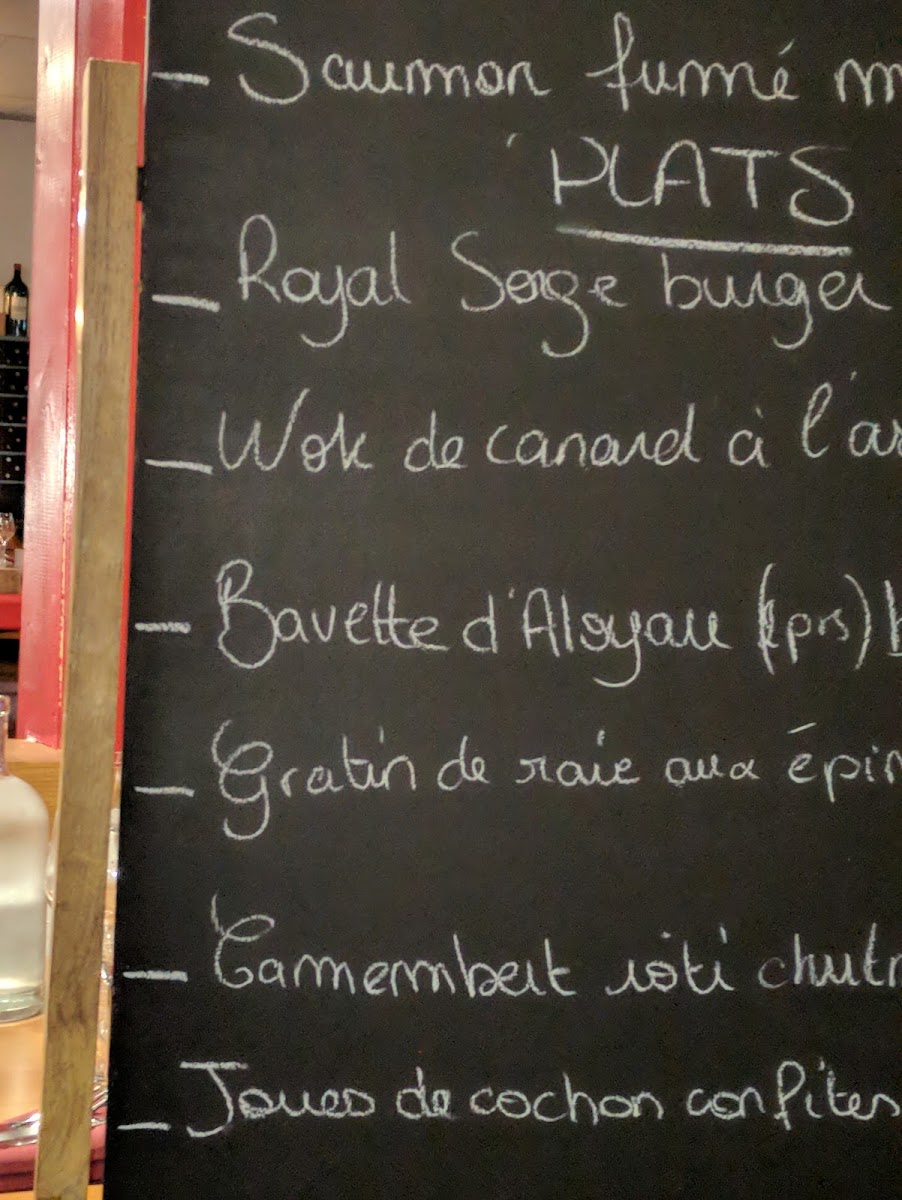 – Saumon fumé m
PLATS
– Royal Sorge burger
– Wok de canard à l'as
– Bavette d'Aloyau (kprs)
– Gratin de raie aux épin
– Camembert rôti chutn
– Joues de cochon confites